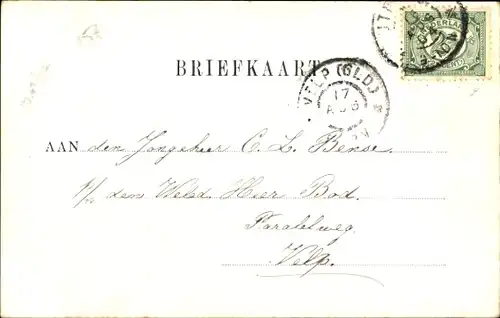 BRIEFKAART
NEDERLAND
VELP (GLD.)
17
AUG
AAN den Jongeheer C. L. Bense.
p/a den Weled. Heer Bod.
Paralelweg.
Velp.